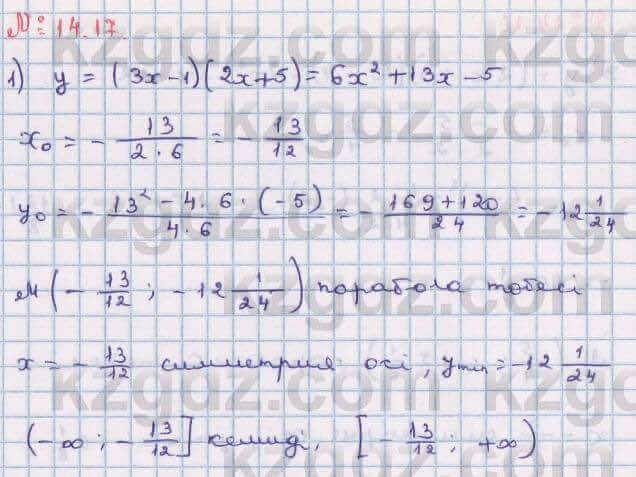 № 14.17.
1) y = (3x-1)(2x+5) = 6x² + 13x - 5
x₀ = - 13/(2·6) = - 13/12
y₀ = - (13² - 4·6·(-5))/(4·6) = - (169+120)/24 = -12 1/24
M(- 13/12 ; -12 1/24) парабола төбесі
x = - 13/12 симметрия осі, y min = -12 1/24
(-∞; - 13/12] кемиді, [- 13/12; +∞)
kzgdz.com